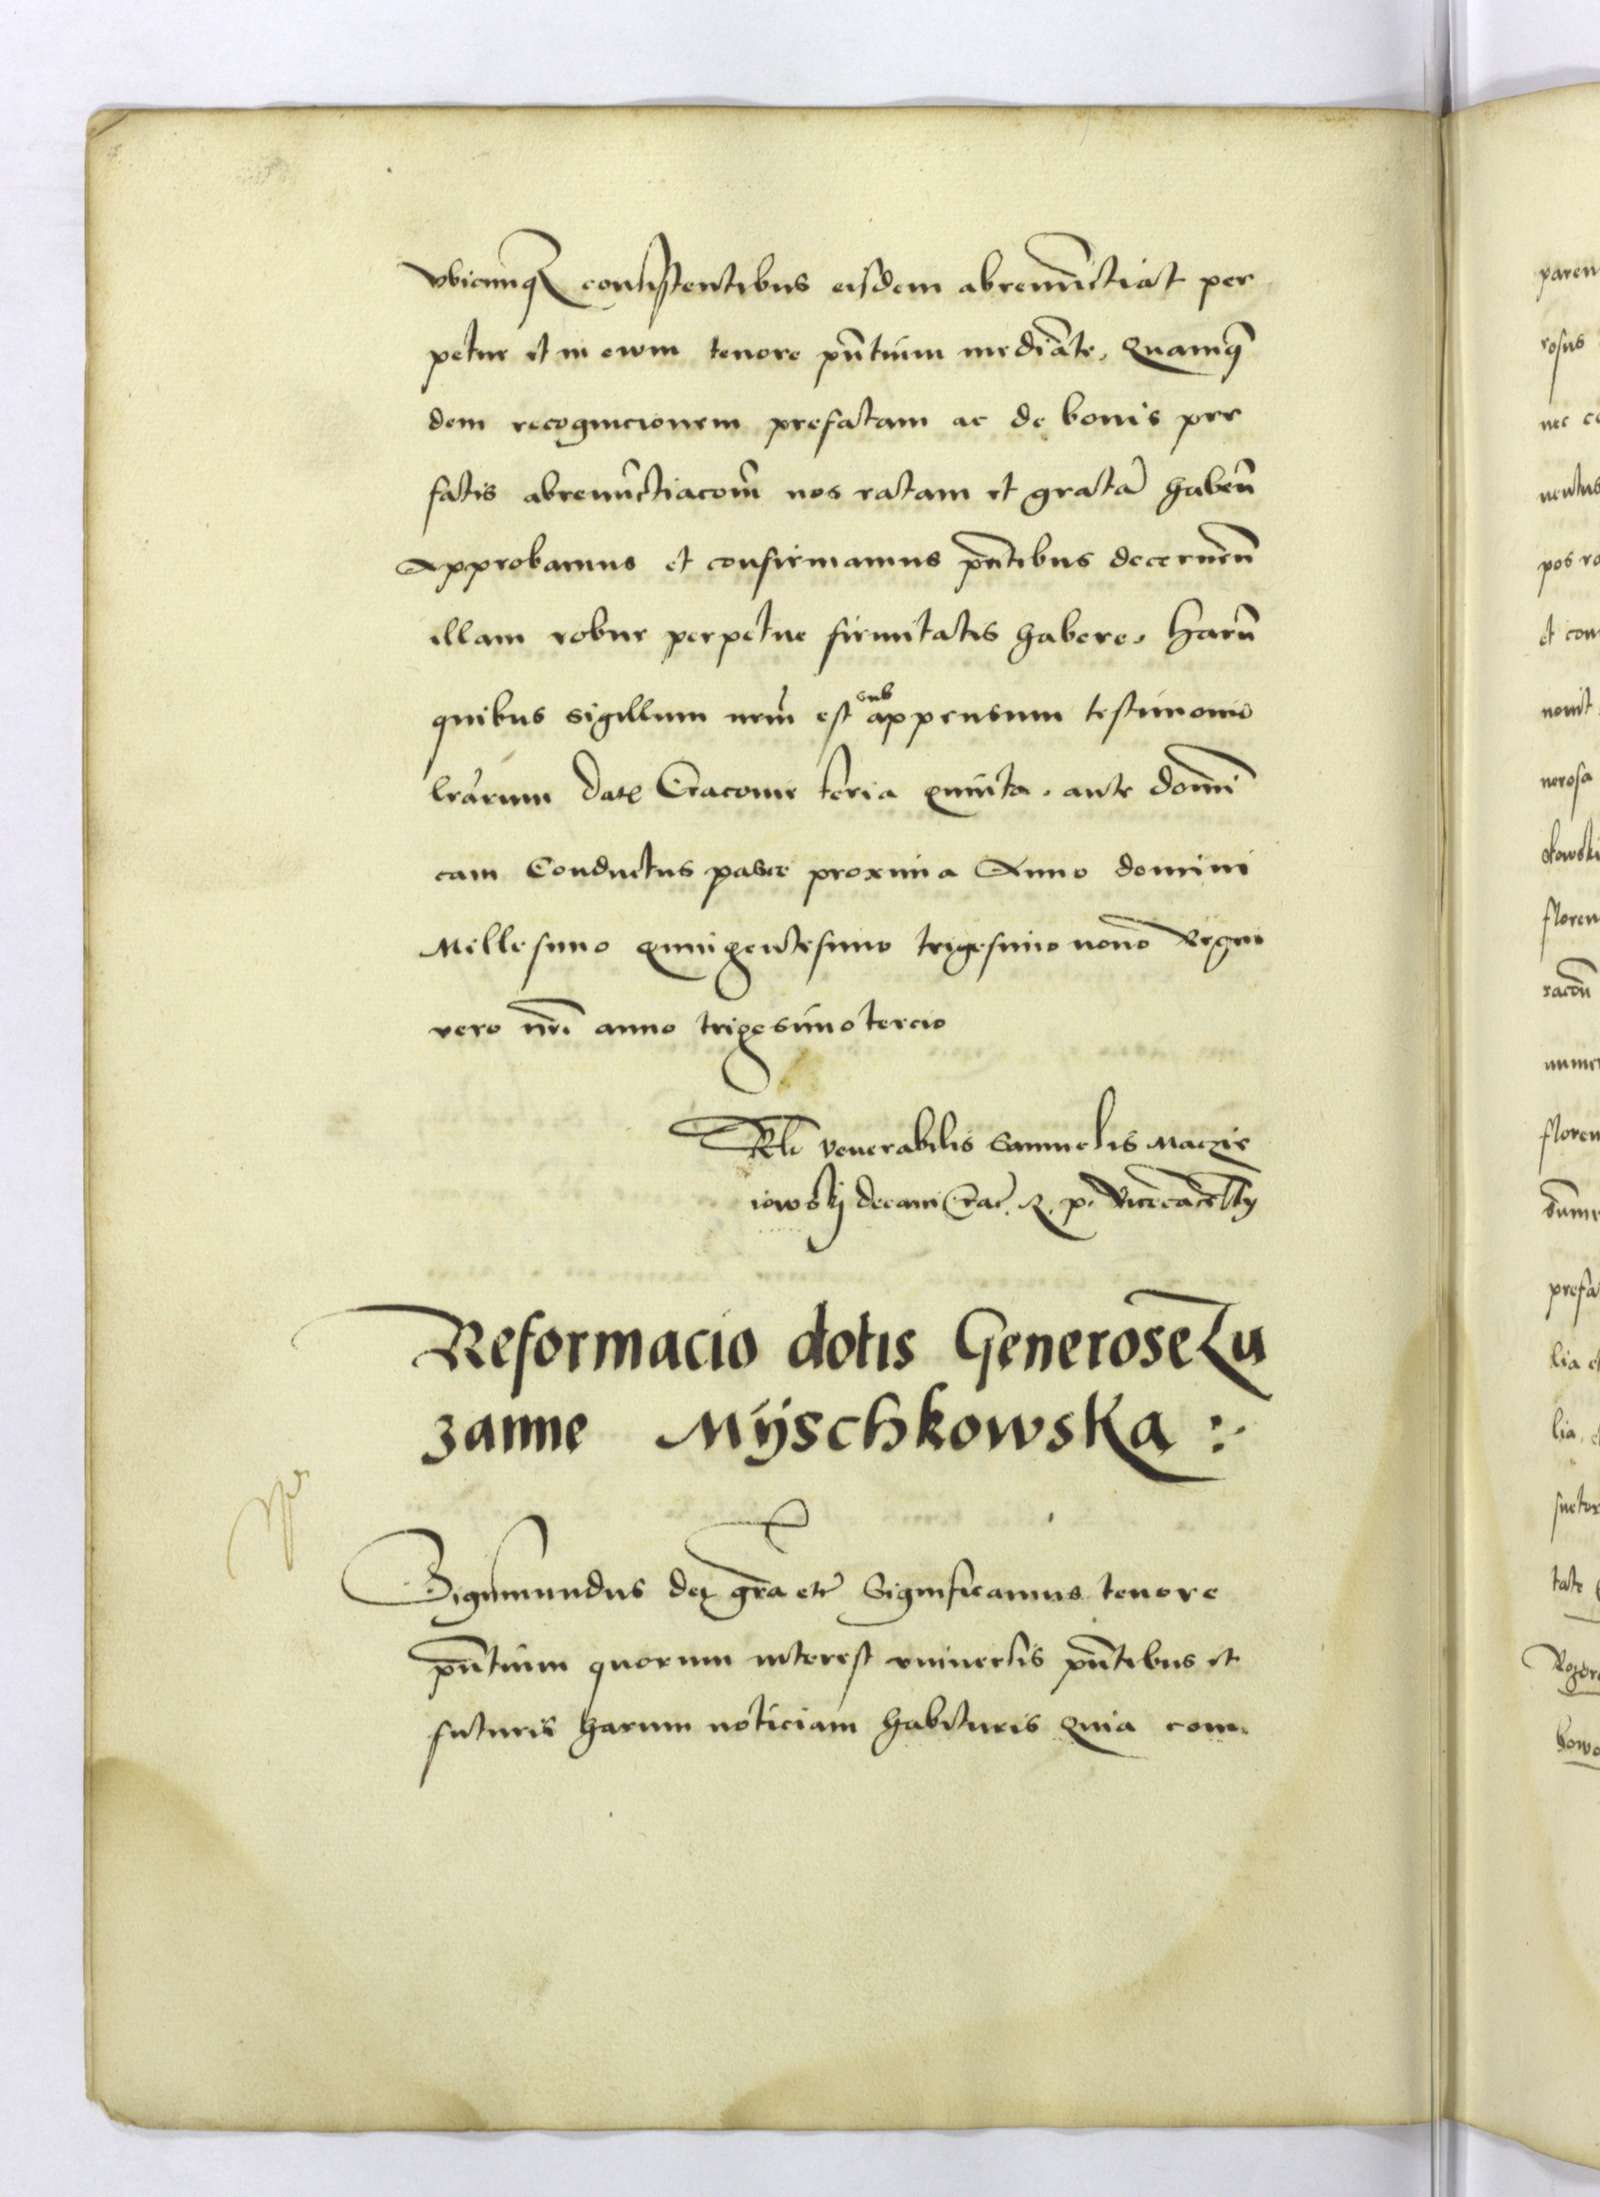 vbicunq consistentibus eisdem abrenunctiat per
petue et in ewm tenore pntium mediate. Quamq
dem recognicionem prefatam ac de bonis pre
fatis abrenunctiacom nos ratam et grata haben
Approbamus et confirmamus pntibus decernen
illam robur perpetue firmitatis habere. Haru
quibus sigillum nrm est sub appensum testimonio
lrarum Date Cracouie feria quinta. ante domi
cam Conductus pasce proxima Anno domini
Millesimo quingentesimo trigesimo nono Regni
vero nri anno trigesimo tercio
Rlo venerabilis Samuelis Maczie
iowskij decani Crac. R. p. Vicecacellij
Reformacio dotis Generose Zu
zanne Myschkowska :.
Sigismundus dei gra etc Significamus tenore
pntium quorum interest vniuersis pntibus et
futuris harum noticiam habituris Quia coram
paren
rosus
nec co
uentus
pos ro
et con
nouit
nerosa
kowski
floren
racon
nume
floren
Summe
prefa
lia et
lia, e
tate
kows